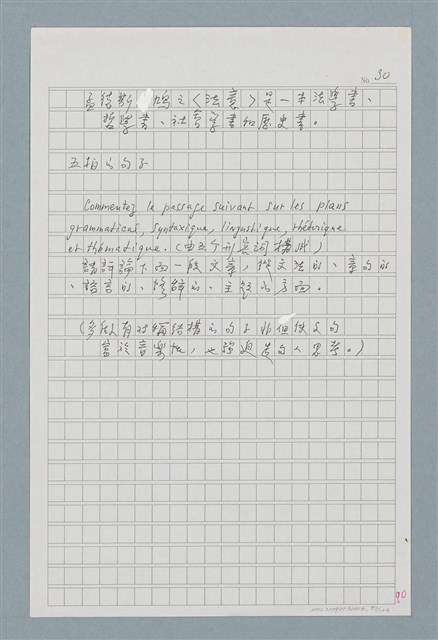 No. 30
孟德斯鳩之〈法意〉是一本法學書、
哲學書、社會學書和歷史書。
五拍的句子
Commentez le passage suivant sur les plans
grammatical, syntaxique, linguistique, rhétorique
et thématique. (由五个形容詞構成)
請討論下面一段文章,從文法的、章句的
、語言的、修辭的、主題的方面。
(多數有對稱結構的句子非但使文句
富於音樂性,也強迫讀的人思考。)
90